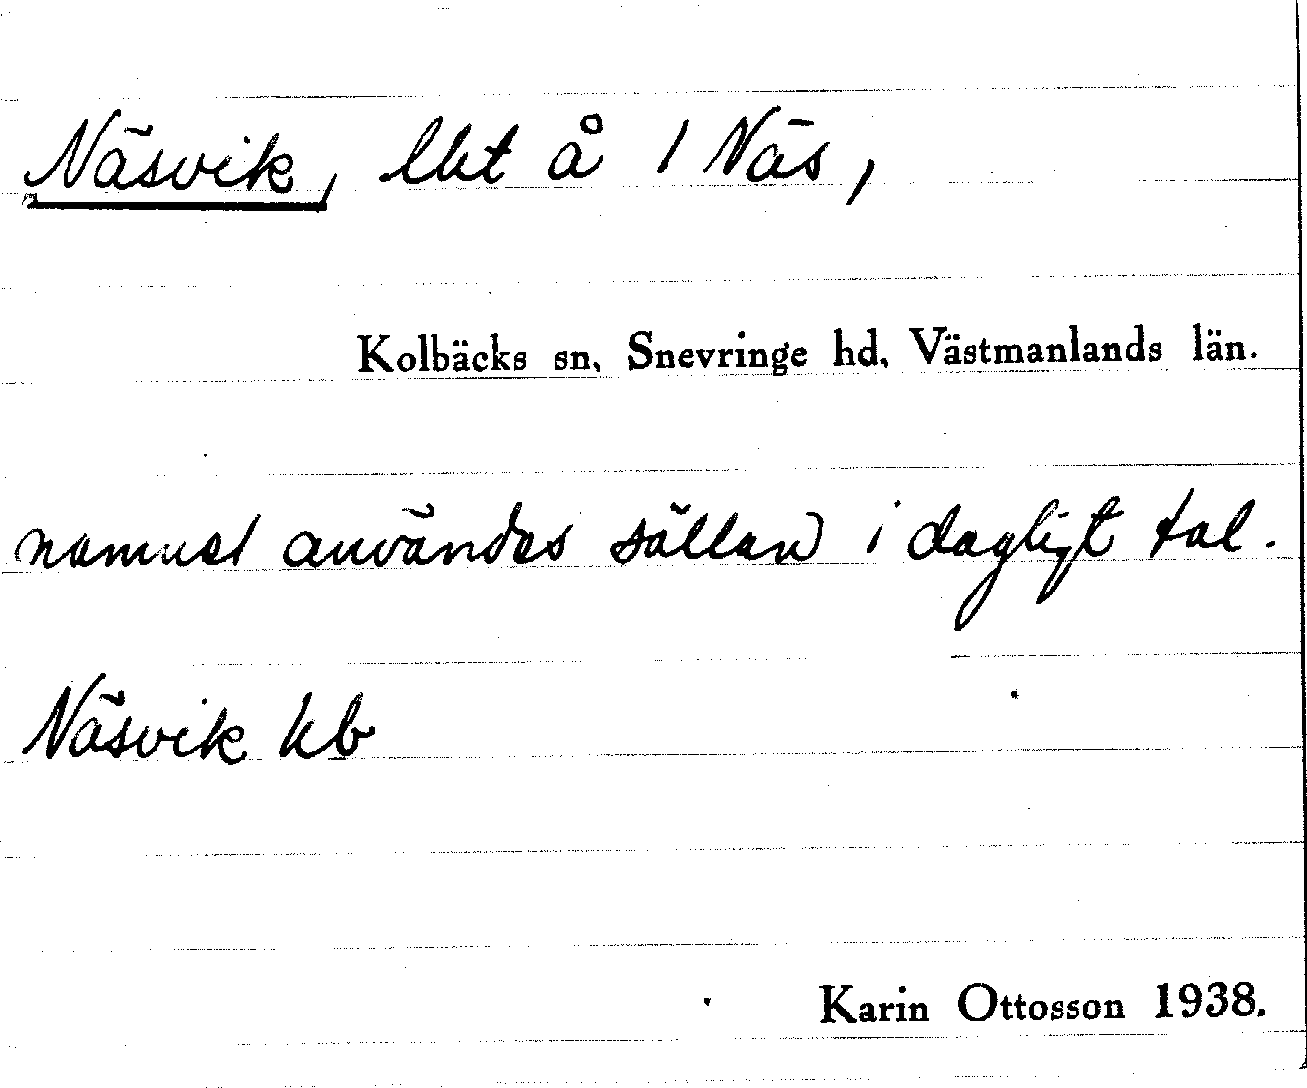 Näsvik, lht å 1 Näs,
Kolbäcks sn, Snevringe hd, Västmanlands län.
namnet användes sällan i dagligt tal.
Näsvik kb
Karin Ottosson 1938.